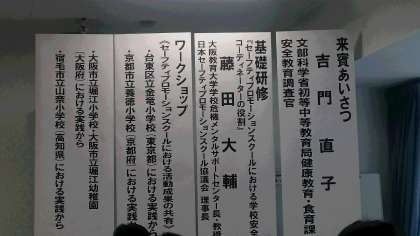 来賓あいさつ
吉門直子
文部科学省初等中等教育局健康教育・食育課
安全教育調査官
基礎研修
《セーフティプロモーションスクールにおける学校安全
コーディネーターの役割》
藤田大輔
大阪教育大学学校危機メンタルサポートセンター長・教授
日本セーフティプロモーションスクール協議会 理事長
ワークショップ
《セーフティプロモーションスクールにおける活動成果の共有》
・台東区立金竜小学校（東京都）における実践から
・京都市立養徳小学校（京都府）における実践から
・大阪市立堀江小学校・大阪市立堀江幼稚園
（大阪府）における実践から
・宿毛市立山奈小学校（高知県）における実践から